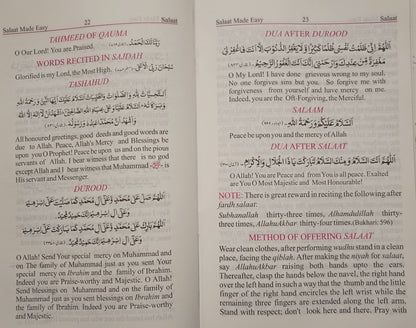 Salaat Made Easy 22 Salaat
TAHMEED OF QAUMA
رَبَّنَا لَكَ الْحَمْدُ
O Our Lord! You are Praised.
WORDS RECITED IN SAJDAH
سُبْحَانَ رَبِّيَ الْاَعْلٰى
Glorified is my Lord, the Most High.
TASHAHUD
اَلتَّحِيَّاتُ لِلّٰهِ وَالصَّلَوَاتُ وَالطَّيِّبَاتُ اَلسَّلَامُ عَلَيْكَ اَيُّهَا النَّبِيُّ وَرَحْمَةُ اللّٰهِ
وَبَرَكَاتُهٗ اَلسَّلَامُ عَلَيْنَا وَعَلٰى عِبَادِ اللّٰهِ الصَّالِحِيْنَ اَشْهَدُ اَنْ لَّا اِلٰهَ اِلَّا اللّٰهُ
وَاَشْهَدُ اَنَّ مُحَمَّدًا عَبْدُهٗ وَرَسُوْلُهٗ
All honoured greetings, good deeds and good words are
due to Allah. Peace, Allah's Mercy and Blessings be
upon you O Prophet! Peace be upon us and on the pious
servants of Allah. I bear witness that there is no god
except Allah and I bear witness that Muhammad ﷺ is
His servant and Messenger.
DUROOD
اَللّٰهُمَّ صَلِّ عَلٰى مُحَمَّدٍ وَّعَلٰى اٰلِ مُحَمَّدٍ كَمَا صَلَّيْتَ عَلٰى اِبْرَاهِيْمَ
وَعَلٰى اٰلِ اِبْرَاهِيْمَ اِنَّكَ حَمِيْدٌ مَّجِيْدٌ
اَللّٰهُمَّ بَارِكْ عَلٰى مُحَمَّدٍ وَّعَلٰى اٰلِ مُحَمَّدٍ كَمَا بَارَكْتَ عَلٰى اِبْرَاهِيْمَ
وَعَلٰى اٰلِ اِبْرَاهِيْمَ اِنَّكَ حَمِيْدٌ مَّجِيْدٌ
O Allah! Send Your special mercy on Muhammad and
on The family of Muhammad just as you sent Your
special mercy on Ibrahim and the family of Ibrahim.
Indeed you are Praise-worthy and Majestic. O Allah!
Send blessings on Muhammad and on the family of
Muhammad just as you sent blessings on Ibrahim and
the family of Ibrahim. Indeed You are Praise-worthy
and Majestic.
Salaat Made Easy 23 Salaat
DUA AFTER DUROOD
اَللّٰهُمَّ اِنِّيْ ظَلَمْتُ نَفْسِيْ ظُلْمًا كَثِيْرًا وَّلَا يَغْفِرُ الذُّنُوْبَ اِلَّا اَنْتَ فَاغْفِرْ لِيْ
مَغْفِرَةً مِّنْ عِنْدِكَ وَارْحَمْنِيْ اِنَّكَ اَنْتَ الْغَفُوْرُ الرَّحِيْمُ
O My Lord! I have done grievous wrong to my soul.
No one forgives sins but you. So forgive me with
forgiveness from yourself and have mercy on me.
Indeed, you are the Oft-Forgiving, the Merciful.
SALAAM
اَلسَّلَامُ عَلَيْكُمْ وَرَحْمَةُ اللّٰهِ
Peace be upon you and the mercy of Allah
DUA AFTER SALAAT
اَللّٰهُمَّ اَنْتَ السَّلَامُ وَمِنْكَ السَّلَامُ تَبَارَكْتَ يَا ذَا الْجَلَالِ وَالْاِكْرَامِ
O Allah! You are Peace and from You is all peace. Exalted
are You O Most Majestic and Most Honourable!
NOTE: There is great reward in reciting the following after
fardh salaat:
Subhanallah thirty-three times, Alhamdulillah thirty-
three times, AllahuAkbar thirty-four times.(Bukhari: 596)
METHOD OF OFFERING SALAAT
Wear clean clothes, after performing wudhu stand in a clean
place, facing the qiblah. After making the niyah for salaat,
say AllahuAkbar raising both hands upto the ears.
Thereafter, clasp the hands below the navel, the right hand
over the left hand in such a way that the thumb and the little
finger of the right hand encircles the left wrist while the
remaining three fingers are extended along the left arm.
Stand with respect; don't look here and there. Pray with